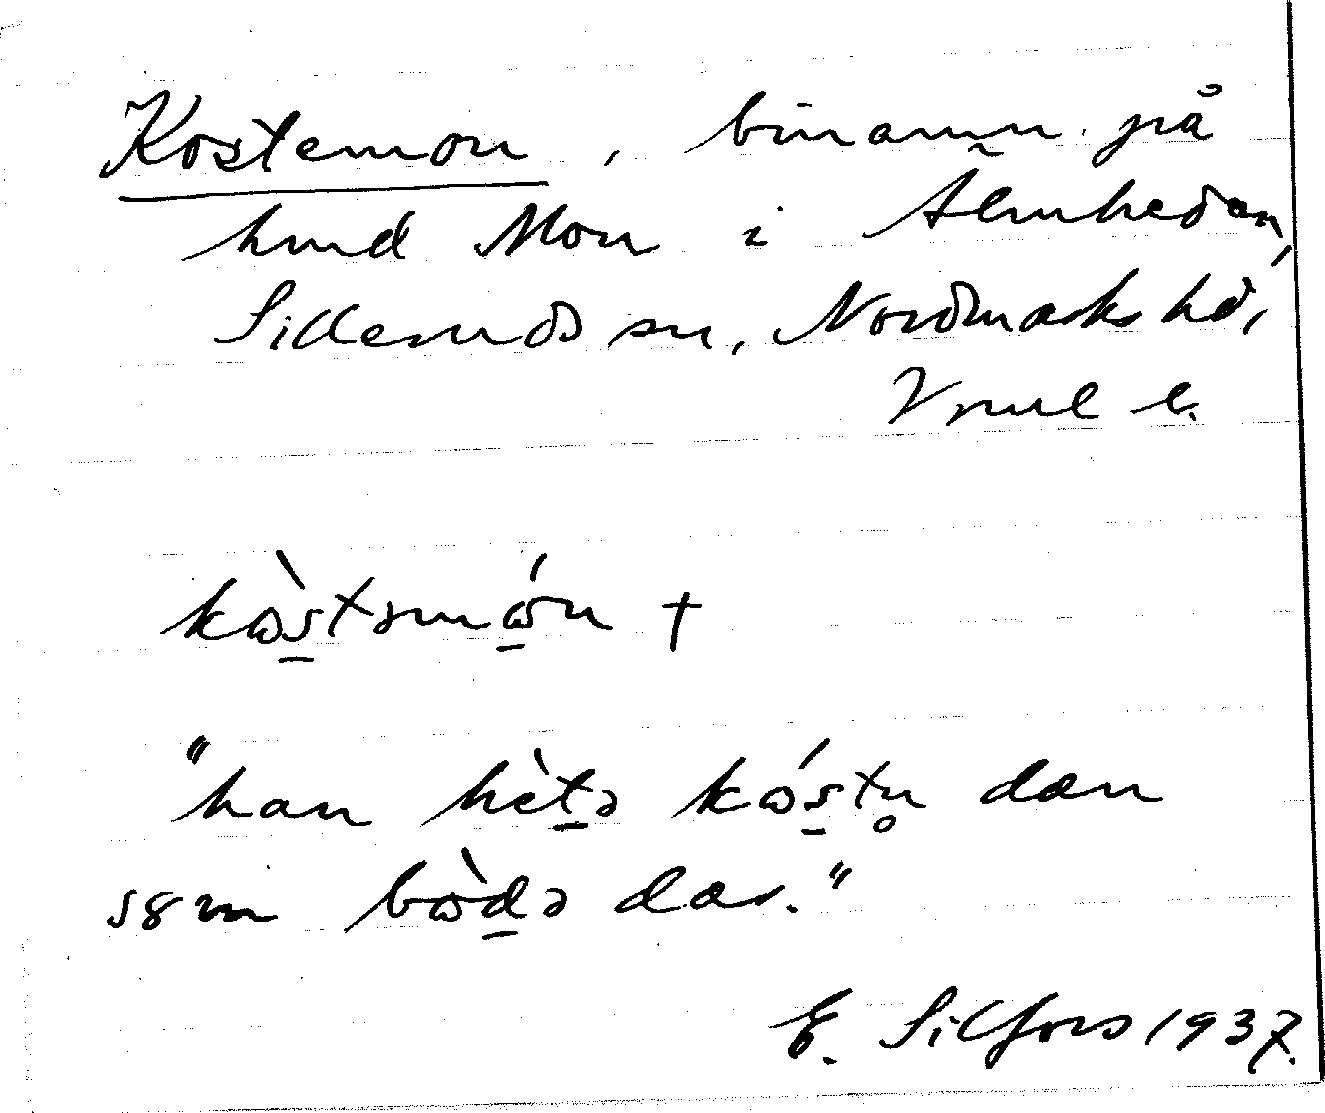 Kostemon, binamn på
hmd Mon i Älmhedan,
Sillerud sn, Nordmarks hd,
Vrml l.
kɷ̀s̱təmɷ̱́n †
"han hèṯə kɷ́s̱tn̥ dæn
sɞm bɷ̀ḏə dær."
E. Silfors 1937.